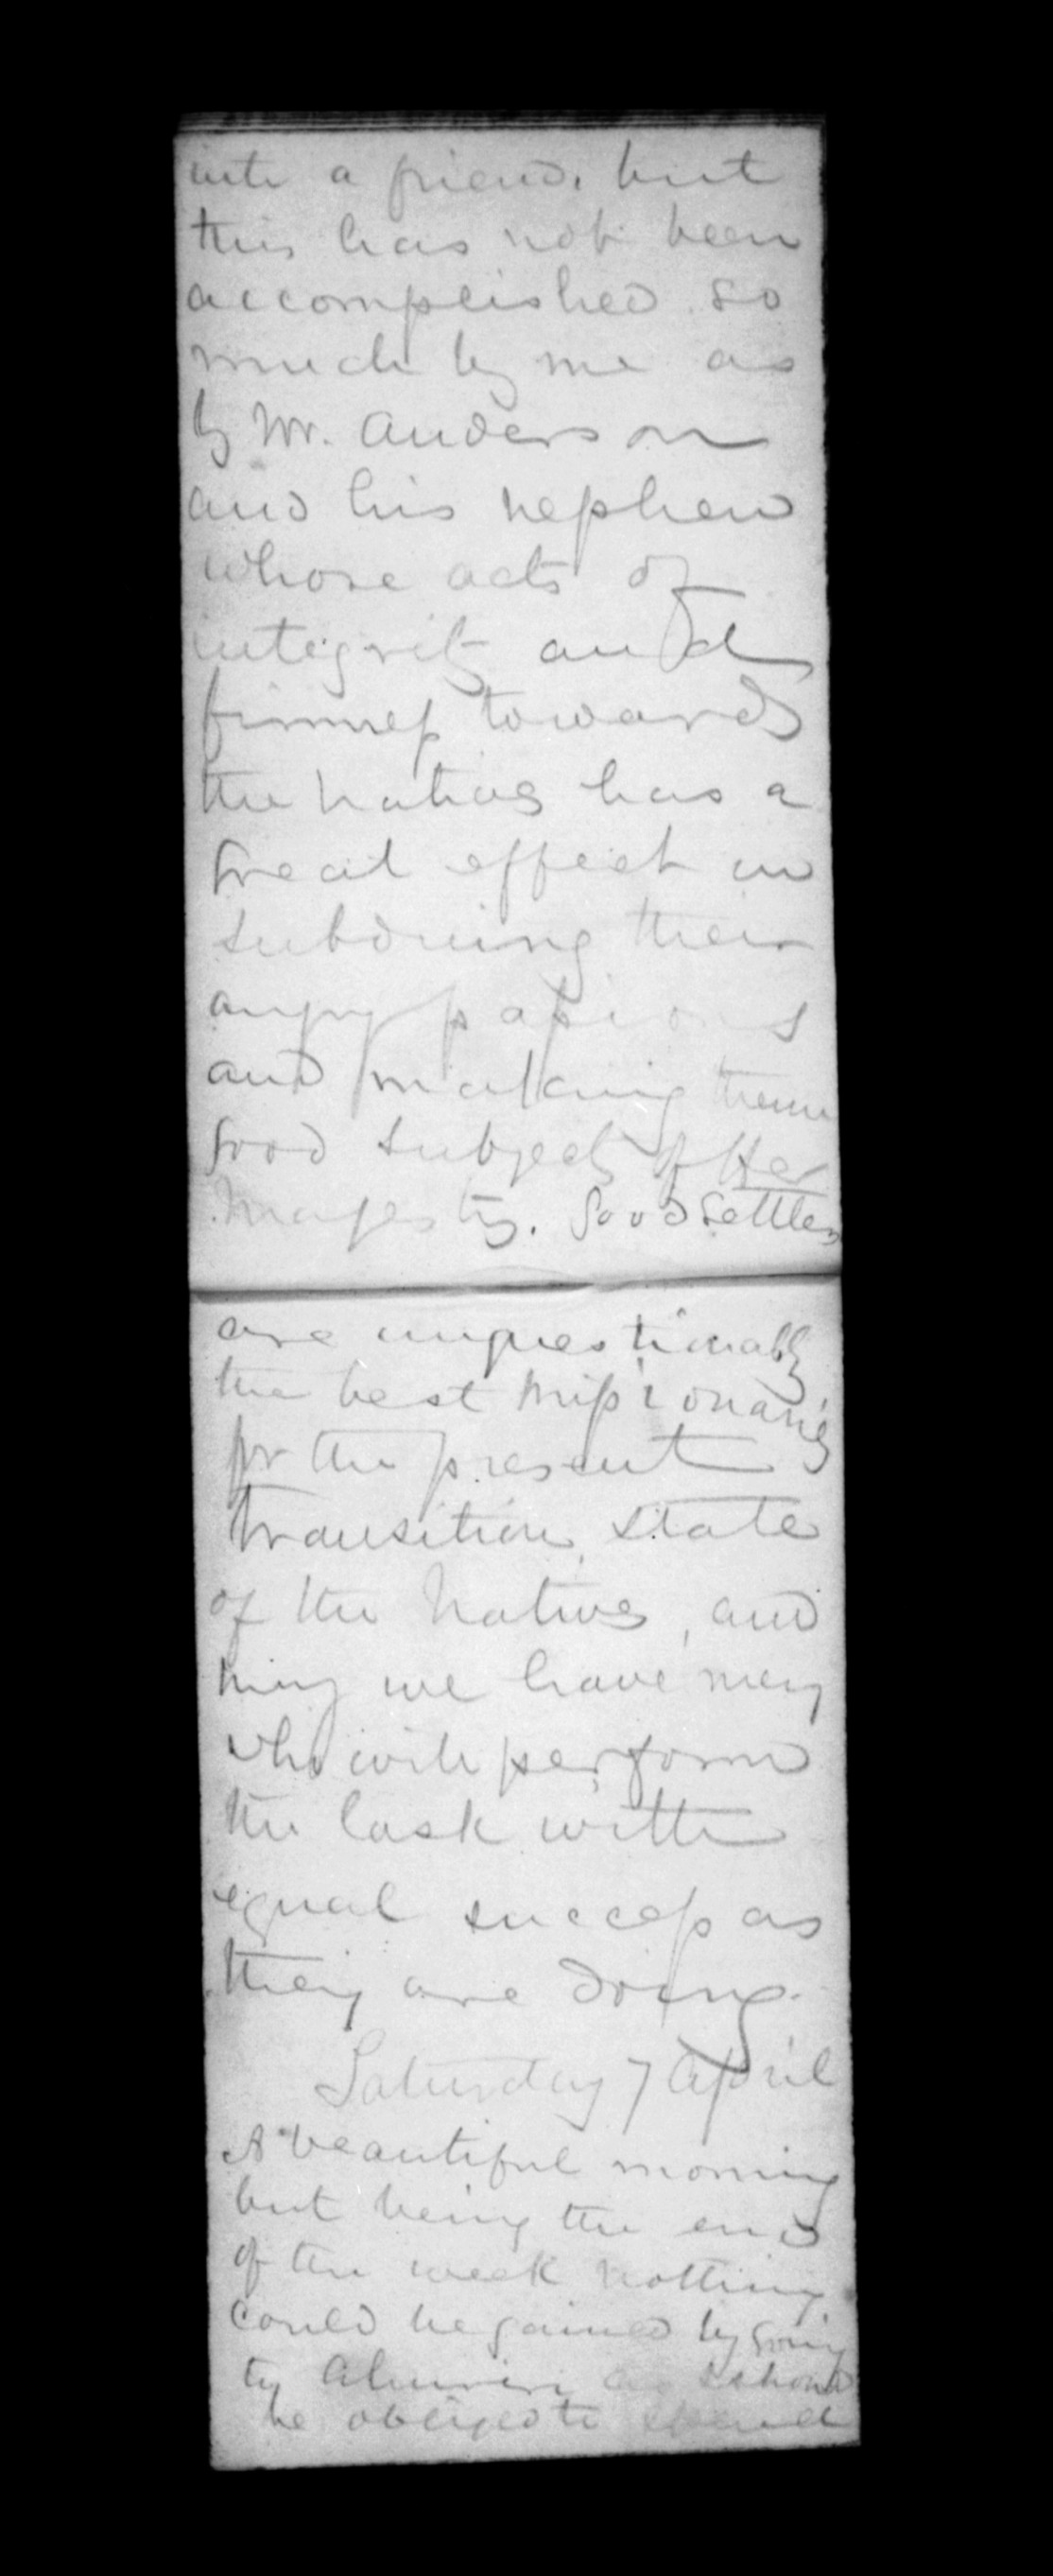 into a friend, but
this has not been
accomplished so
much by me as
by Mr. Anderson
and his nephew
whose acts of
integrity and
firmness towards
the Natives has a
great effect in
subduing their
angry passions
and making them
good subjects of Her
Majesty. Good settlers
are unquestionably
the best missionaries
for the present
transition state
of the Natives, and
may we have many
who will perform
the task with
equal success as
they are doing.
Saturday 7 April
A beautiful morning
but being the end
of the week nothing
could be gained by going
to Ahuriri as I should
be obliged to spend